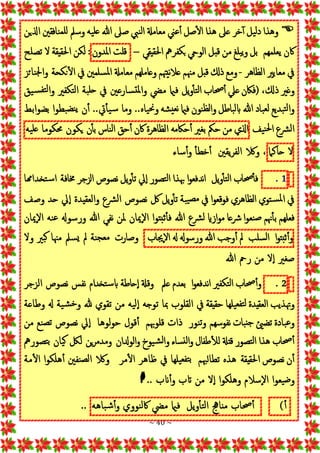 وهذا دليل آخر على هذا الأصل أعني معاملة النبي صلى الله عليه وسلم للمنافقين الذين
كان يعلمهم بل ويبلغ من قبل الوحي بكفرهم الحقيقي – قلت المدون: لكن الحقيقة لا تصلح
في معايير الظاهر - ومع ذلك قبل منهم علانيتهم وعاملهم معاملة المسلمين في الأنكحة والجنائز
وغير ذلك، (فكان علي أصحاب التأويل فيما مضي والمتسارعين في حلبة التكفير والتفسيق
والتبديع لعباد الله بالباطل والظنون فيما نعيشه ونحياه.. وما سيأتي.. أن ينضبطوا بضوابط
الشرع الحنيف الذي من حكم بغير أحكامه الظاهرة كان أحق الناس بأن يكون محكوما عليه
لا حاكما، وكلا الفريقين أخطأ وأساء
1. فأصحاب التأويل اندفعوا بهذا التصور إلي تأويل نصوص الزجر مخافة استخدامها
في المستوي الظاهري فوقعوا في مصيبة تأويل كل نصوص الشرع والعقيدة إلي حد وصف
فعلهم بأنهم صنعوا شرعا موازيا لشرع الله فأثبتوا الإيمان لمن نفي الله ورسوله عنه الإيمان
وأثبتوا السلب لم أوجب الله ورسوله له الإيجاب وصارت معجنة لم يسلم منها كبير ولا
صغير إلا من رحم الله
2. وأصحاب التكفير اندفعوا بعدم علم وقلة إحاطة باستخدام نفس نصوص الزجر
وتهذيب العقيدة لتفعيلها حقيقة في القلوب بما توجه إليه من تقوي لله وخشية له وطاعة
وعبادة تضيئ جنبات نفوسهم وتنور ذات قلوبهم أقول حولوها إلي نصوص تصنع من
أصحاب هذا التصور قتلة للأطفال والنساء والشيوخ والولدان ومدمرين لكل كيان بتصورهم
أن نصوص الحقيقة هذه تطالبهم بتفعيلها في ظاهر الأمر وكلا الصنفين أهلكوا الأمة
وضيعوا الإسلام وهلكوا إلا من تاب وأناب ..
أ) أصحاب مناهج التأويل فيما مضي كالنووي وأشباهه ..
~ 40 ~